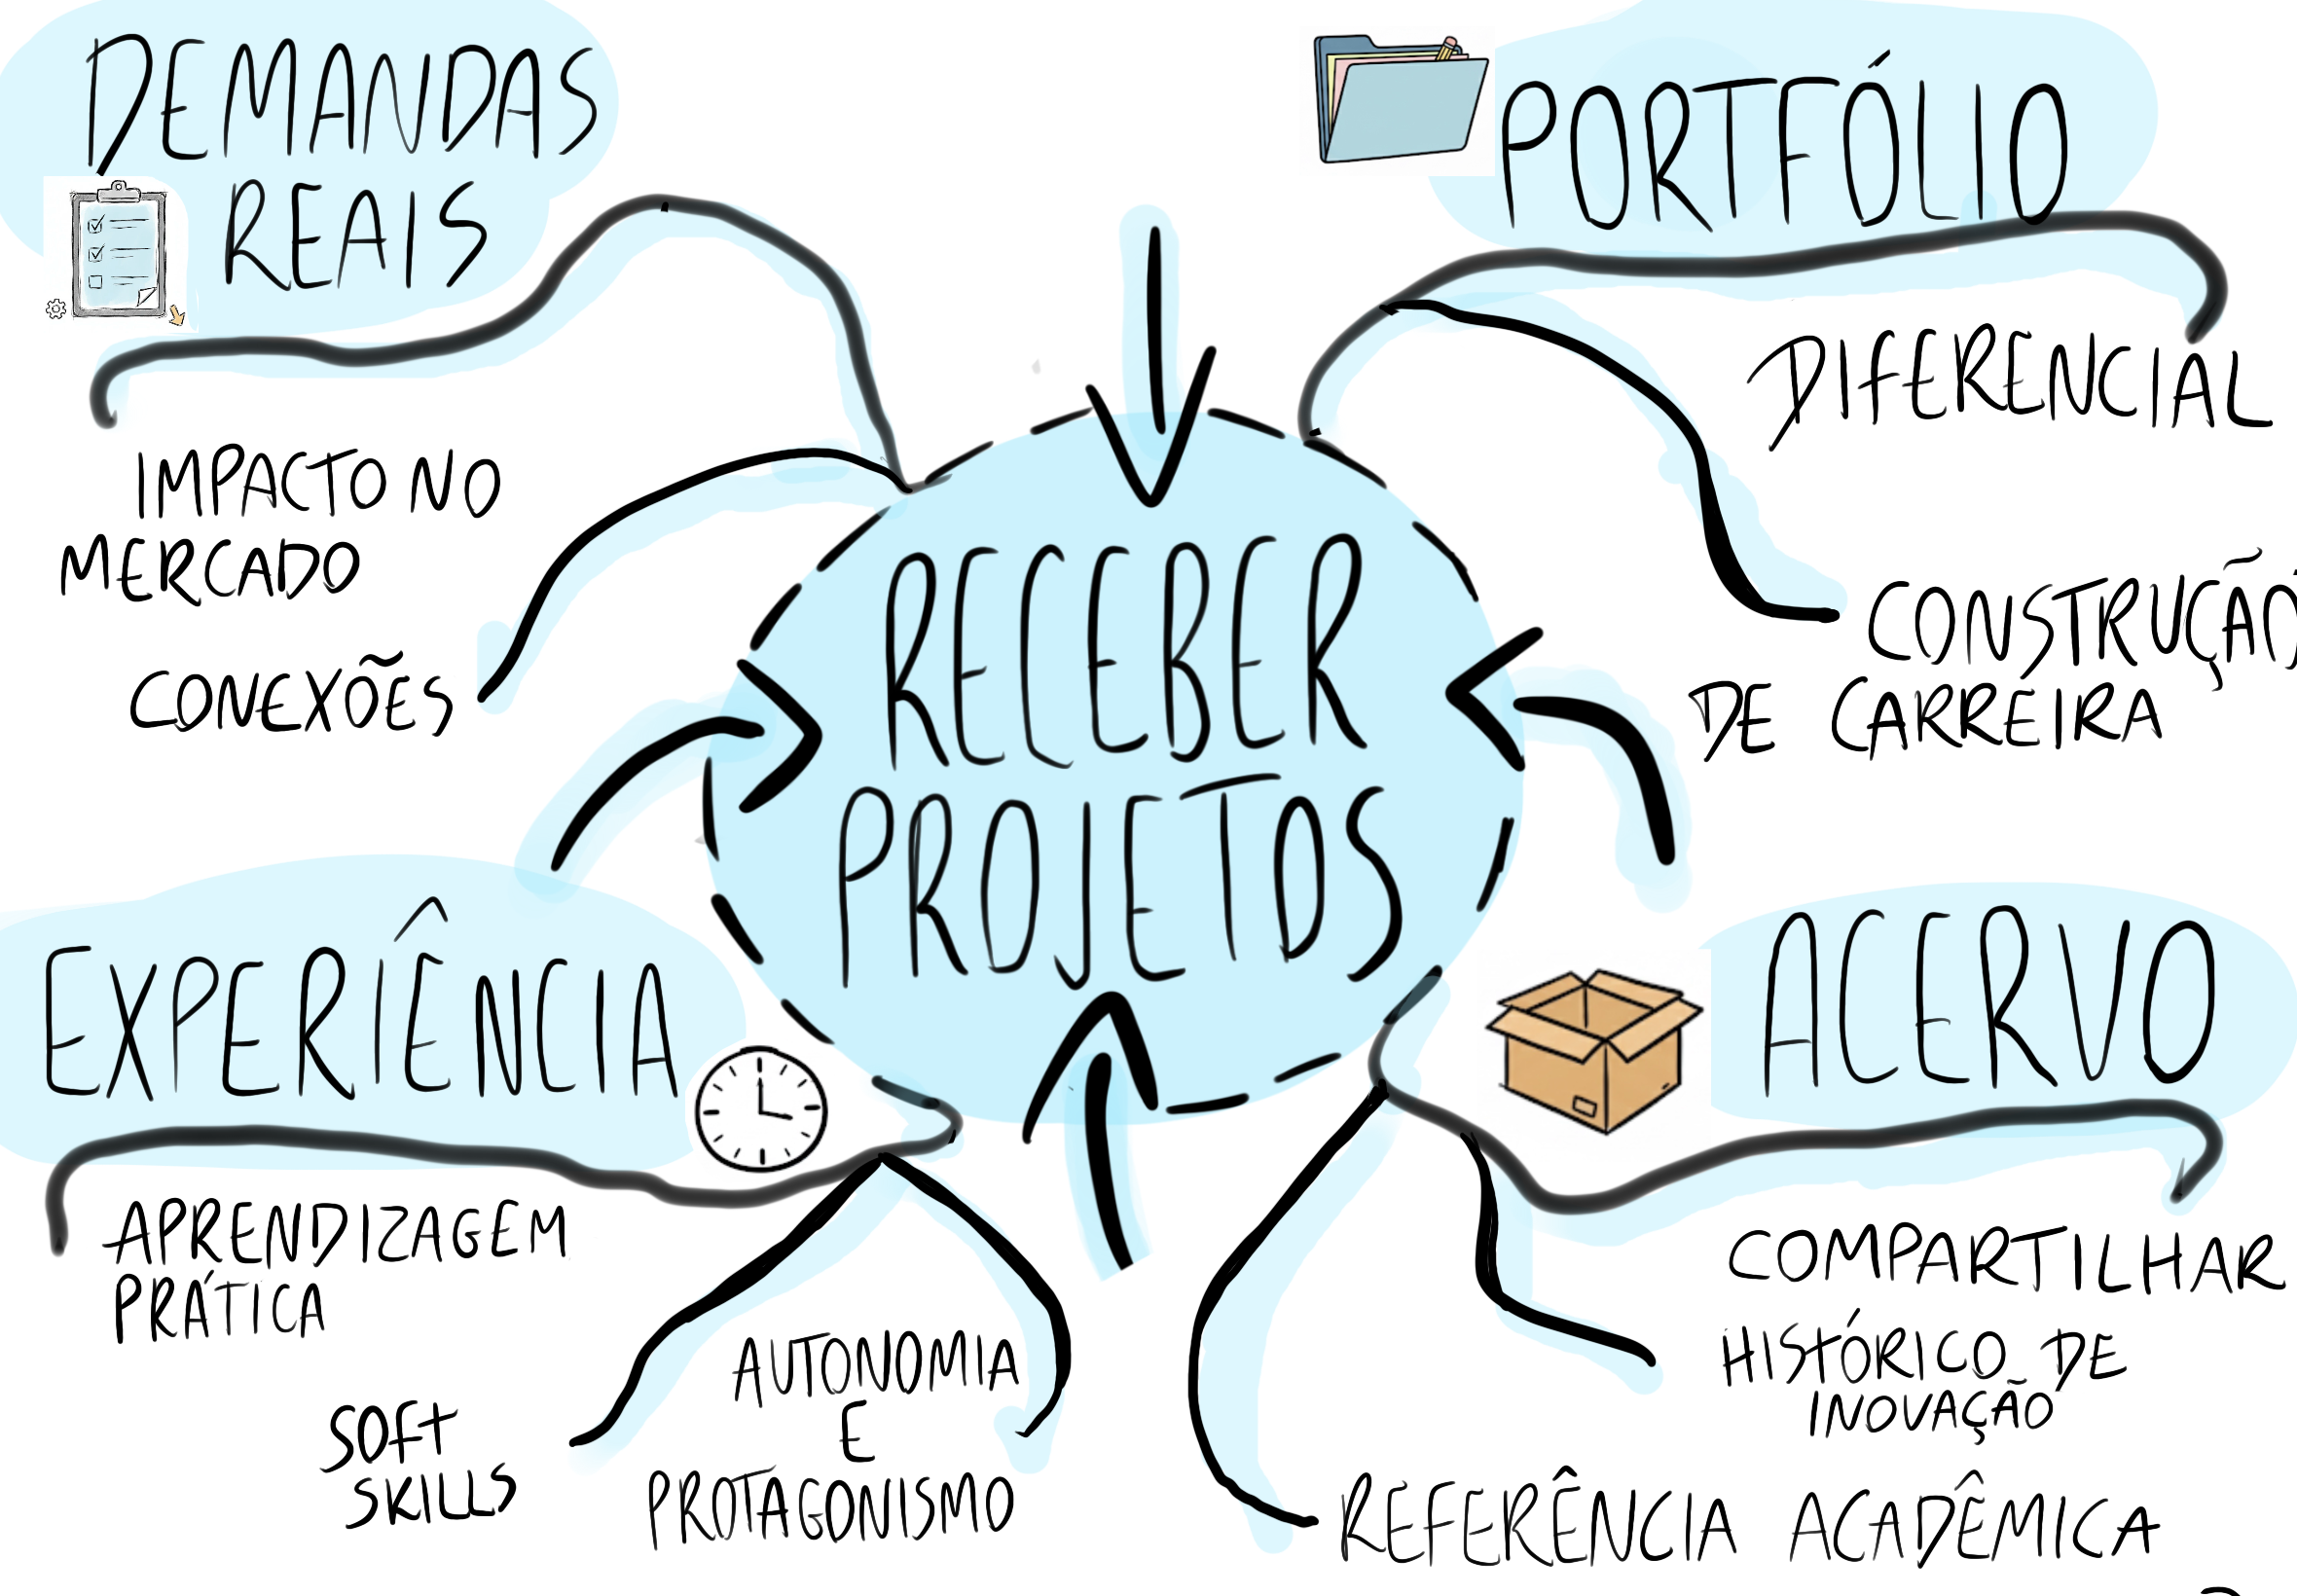 DEMANDAS
REAIS
IMPACTO NO
MERCADO
CONEXÕES
PORTFÓLIO
DIFERENCIAL
CONSTRUÇÃO
DE CARREIRA
RECEBER
PROJETOS
EXPERIÊNCIA
APRENDIZAGEM
PRÁTICA
SOFT
SKILLS
AUTONOMIA
E
PROTAGONISMO
ACERVO
COMPARTILHAR
HISTÓRICO DE
INOVAÇÃO
REFERÊNCIA ACADÊMICA